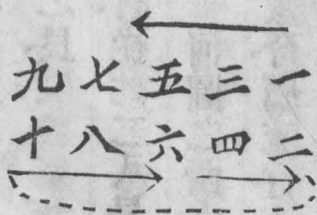 九七五三一
十八六四二